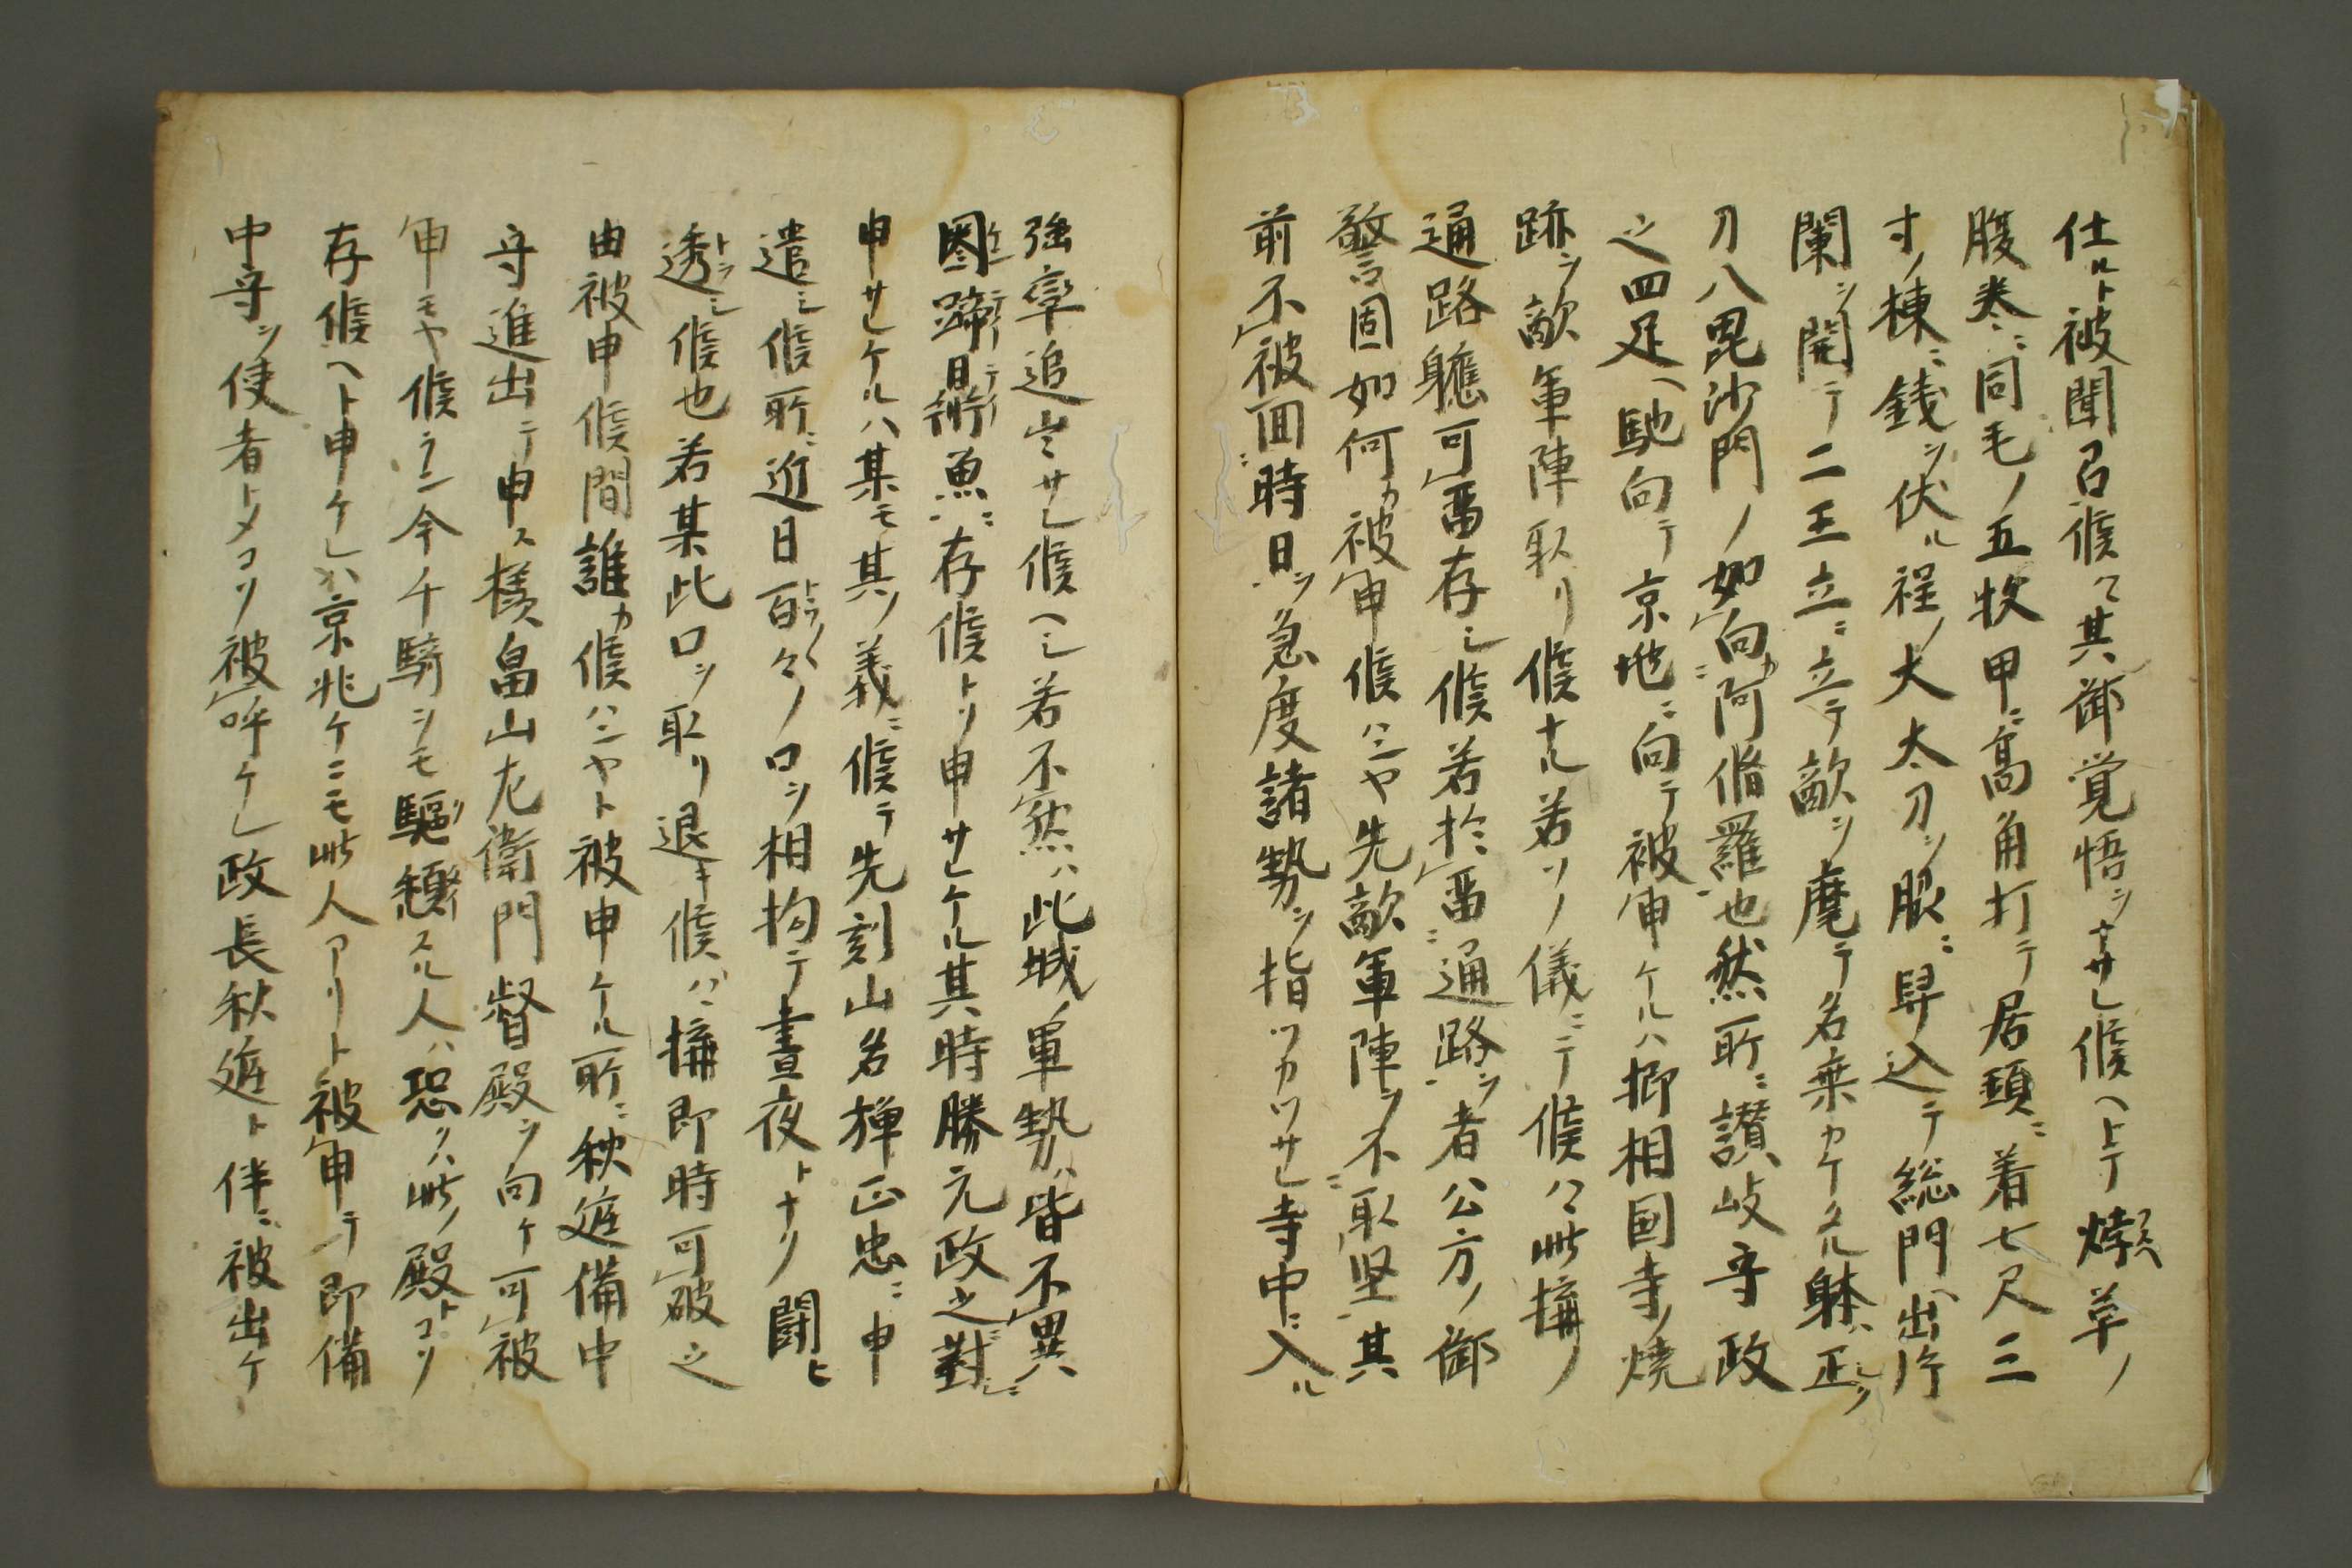 仕ルト被聞召候ハヽ其御覚悟ヲナサレ候ヘトテ燻草ノ
腹巻ニ同毛ノ五枚甲ニ高角打テ居頸ニ着七尺三
寸ノ棟ニ銭ヲ伏ル程ノ大太刀ヲ脇ニ舁込テ総門ヘ出片
闌ヲ開テ二王立ニ立テ敵ヲ麾テ名乗カケタル躰ハ正シク
刀八毘沙門ノ如向カ阿脩羅ニ也然所ニ讃岐守政
之四足ヘ馳向テ京地ニ向テ被申ケルハ抑相國寺ノ焼
跡ヲ敵軍陣取リ候ナル若ソノ儀ニテ候ハヽ此搆ノ
通路軈可畐存シ候若於畐ニ通路ヲ者公方ノ御
警固如何カ被申候ハンヤ先敵軍陣ヲ不取堅ニ其
前不被回ニ時日ヲ急度諸勢ヲ指ツカワサレ寺中ニ入ル
強卒追出サレ候ヘシ若不然ハ此城ノ軍勢ハ皆不異
圏蹄日術魚ニ存候トソ申サレケル其時勝元政之ニ對シ
申サレケルハ某モ其ノ義ニ候テ先刻山名弾正忠ニ申
遣シ候所ニ近日百々ノ口ヲ相拘テ晝夜トナク闘ヒ
透シ候也若某此口ヲ取リ退キ候ハヽ搆即時可破之
由被申候間誰カ候ハンヤト被申ケル所ニ秋庭備中
守進出テ申ス様畠山左衛門督殿ヲ向ケ可被
申モヤ候ラン今千騎ヲモ驅ソ繋スル人ハ恐クハ此ノ殿トコソ
存候ヘト申ケレハ京兆ケニモ此人アリト被申テ即備
中守ヲ使者トメコソ被呼ケレ政長秋庭ト伴ニ被出ケ